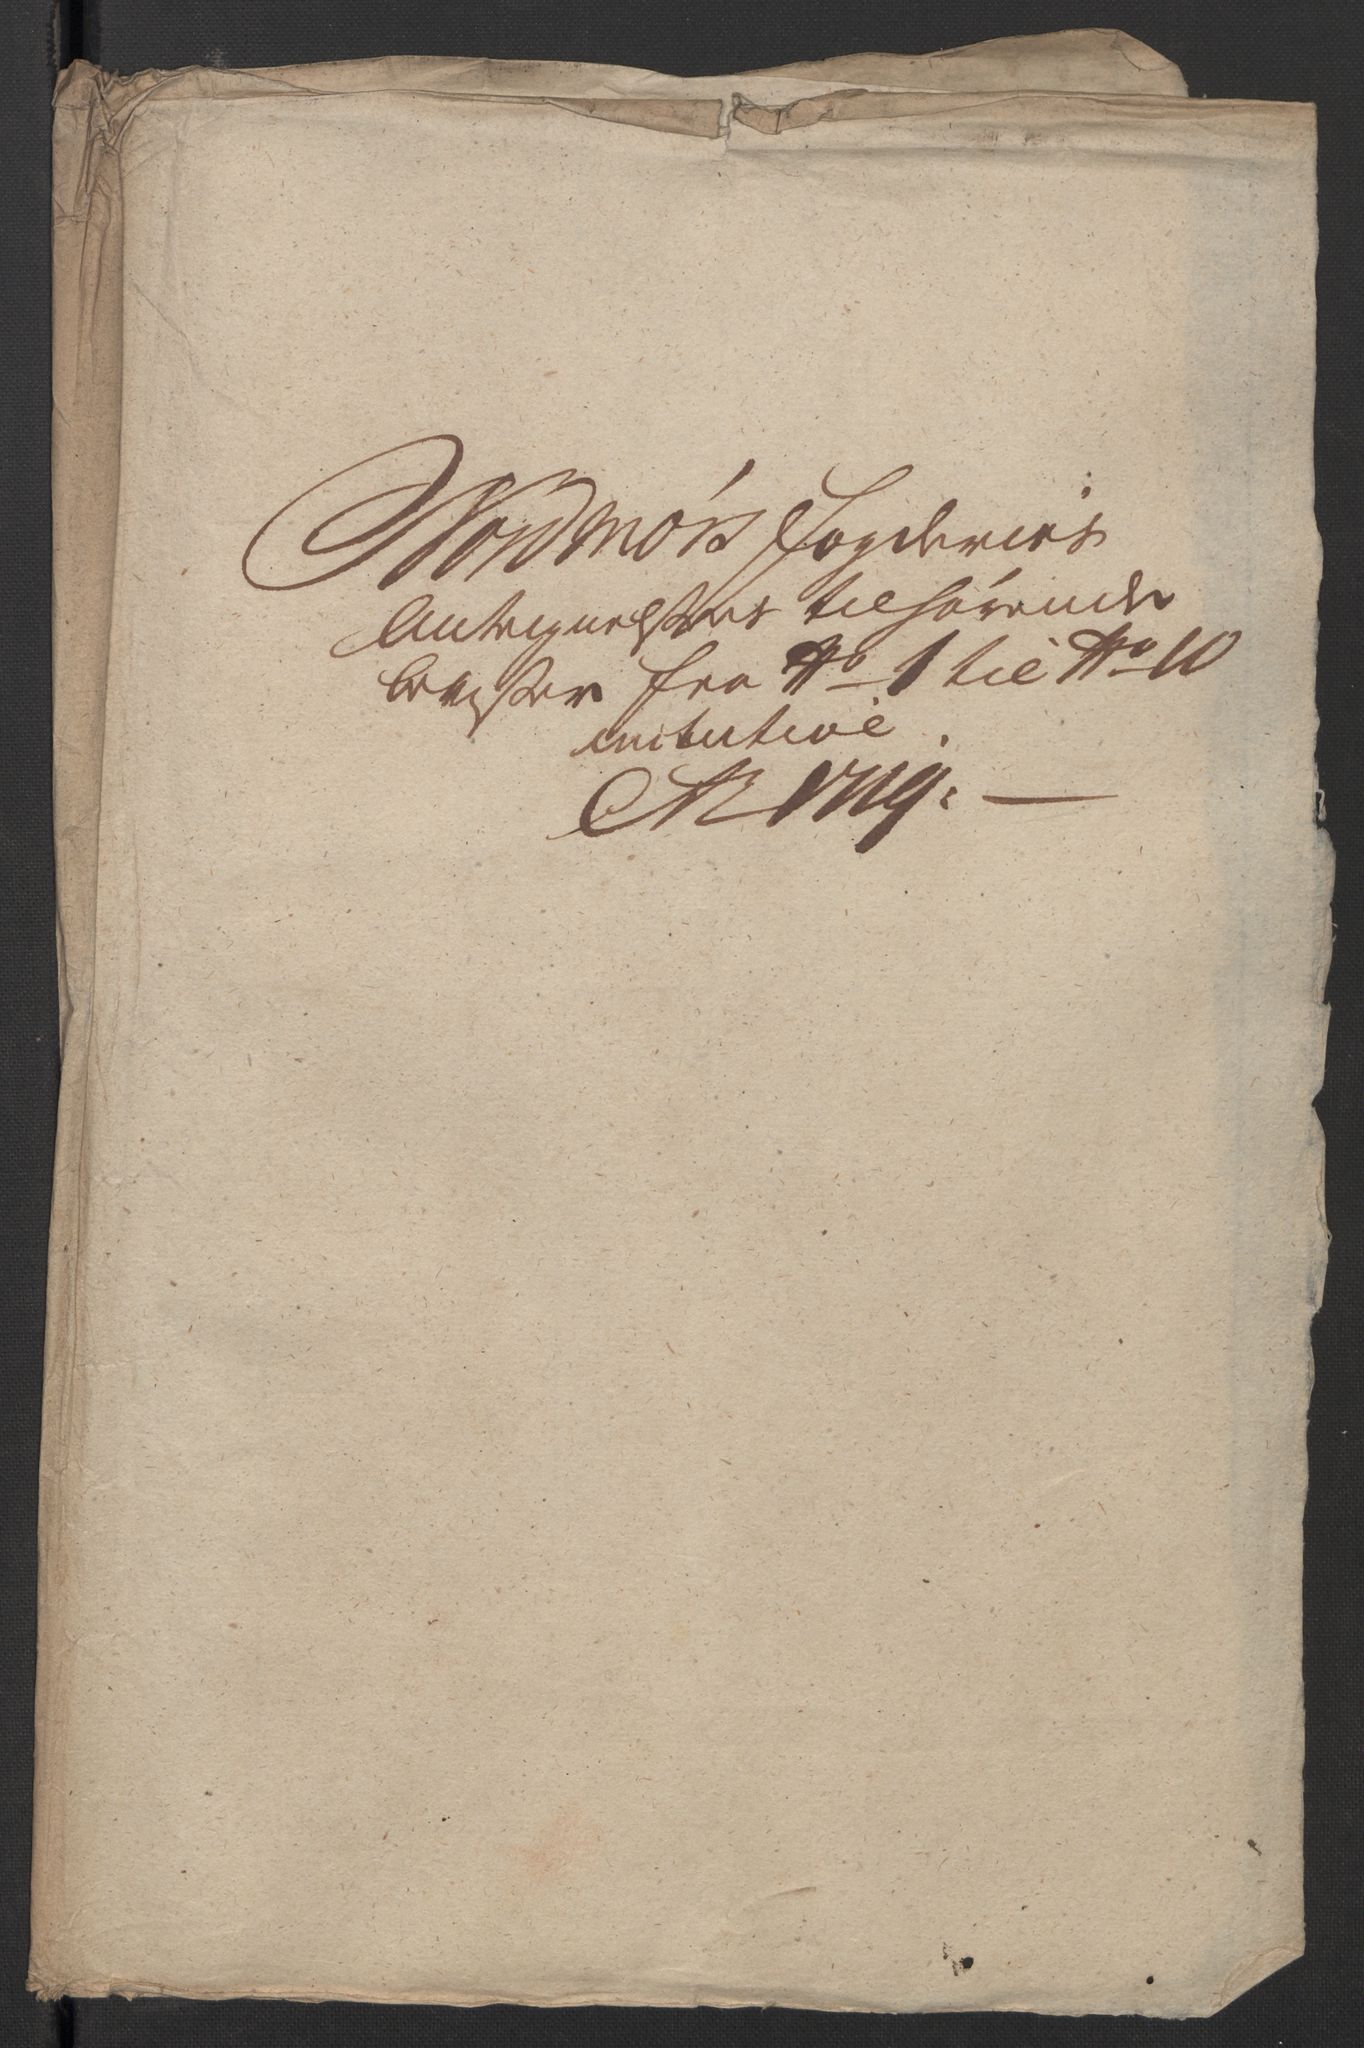 Nordmørs Fogderies
Antegnelsers tilhørende
beviser fra No 1 til No 10
inclusive.
AR 1719. —